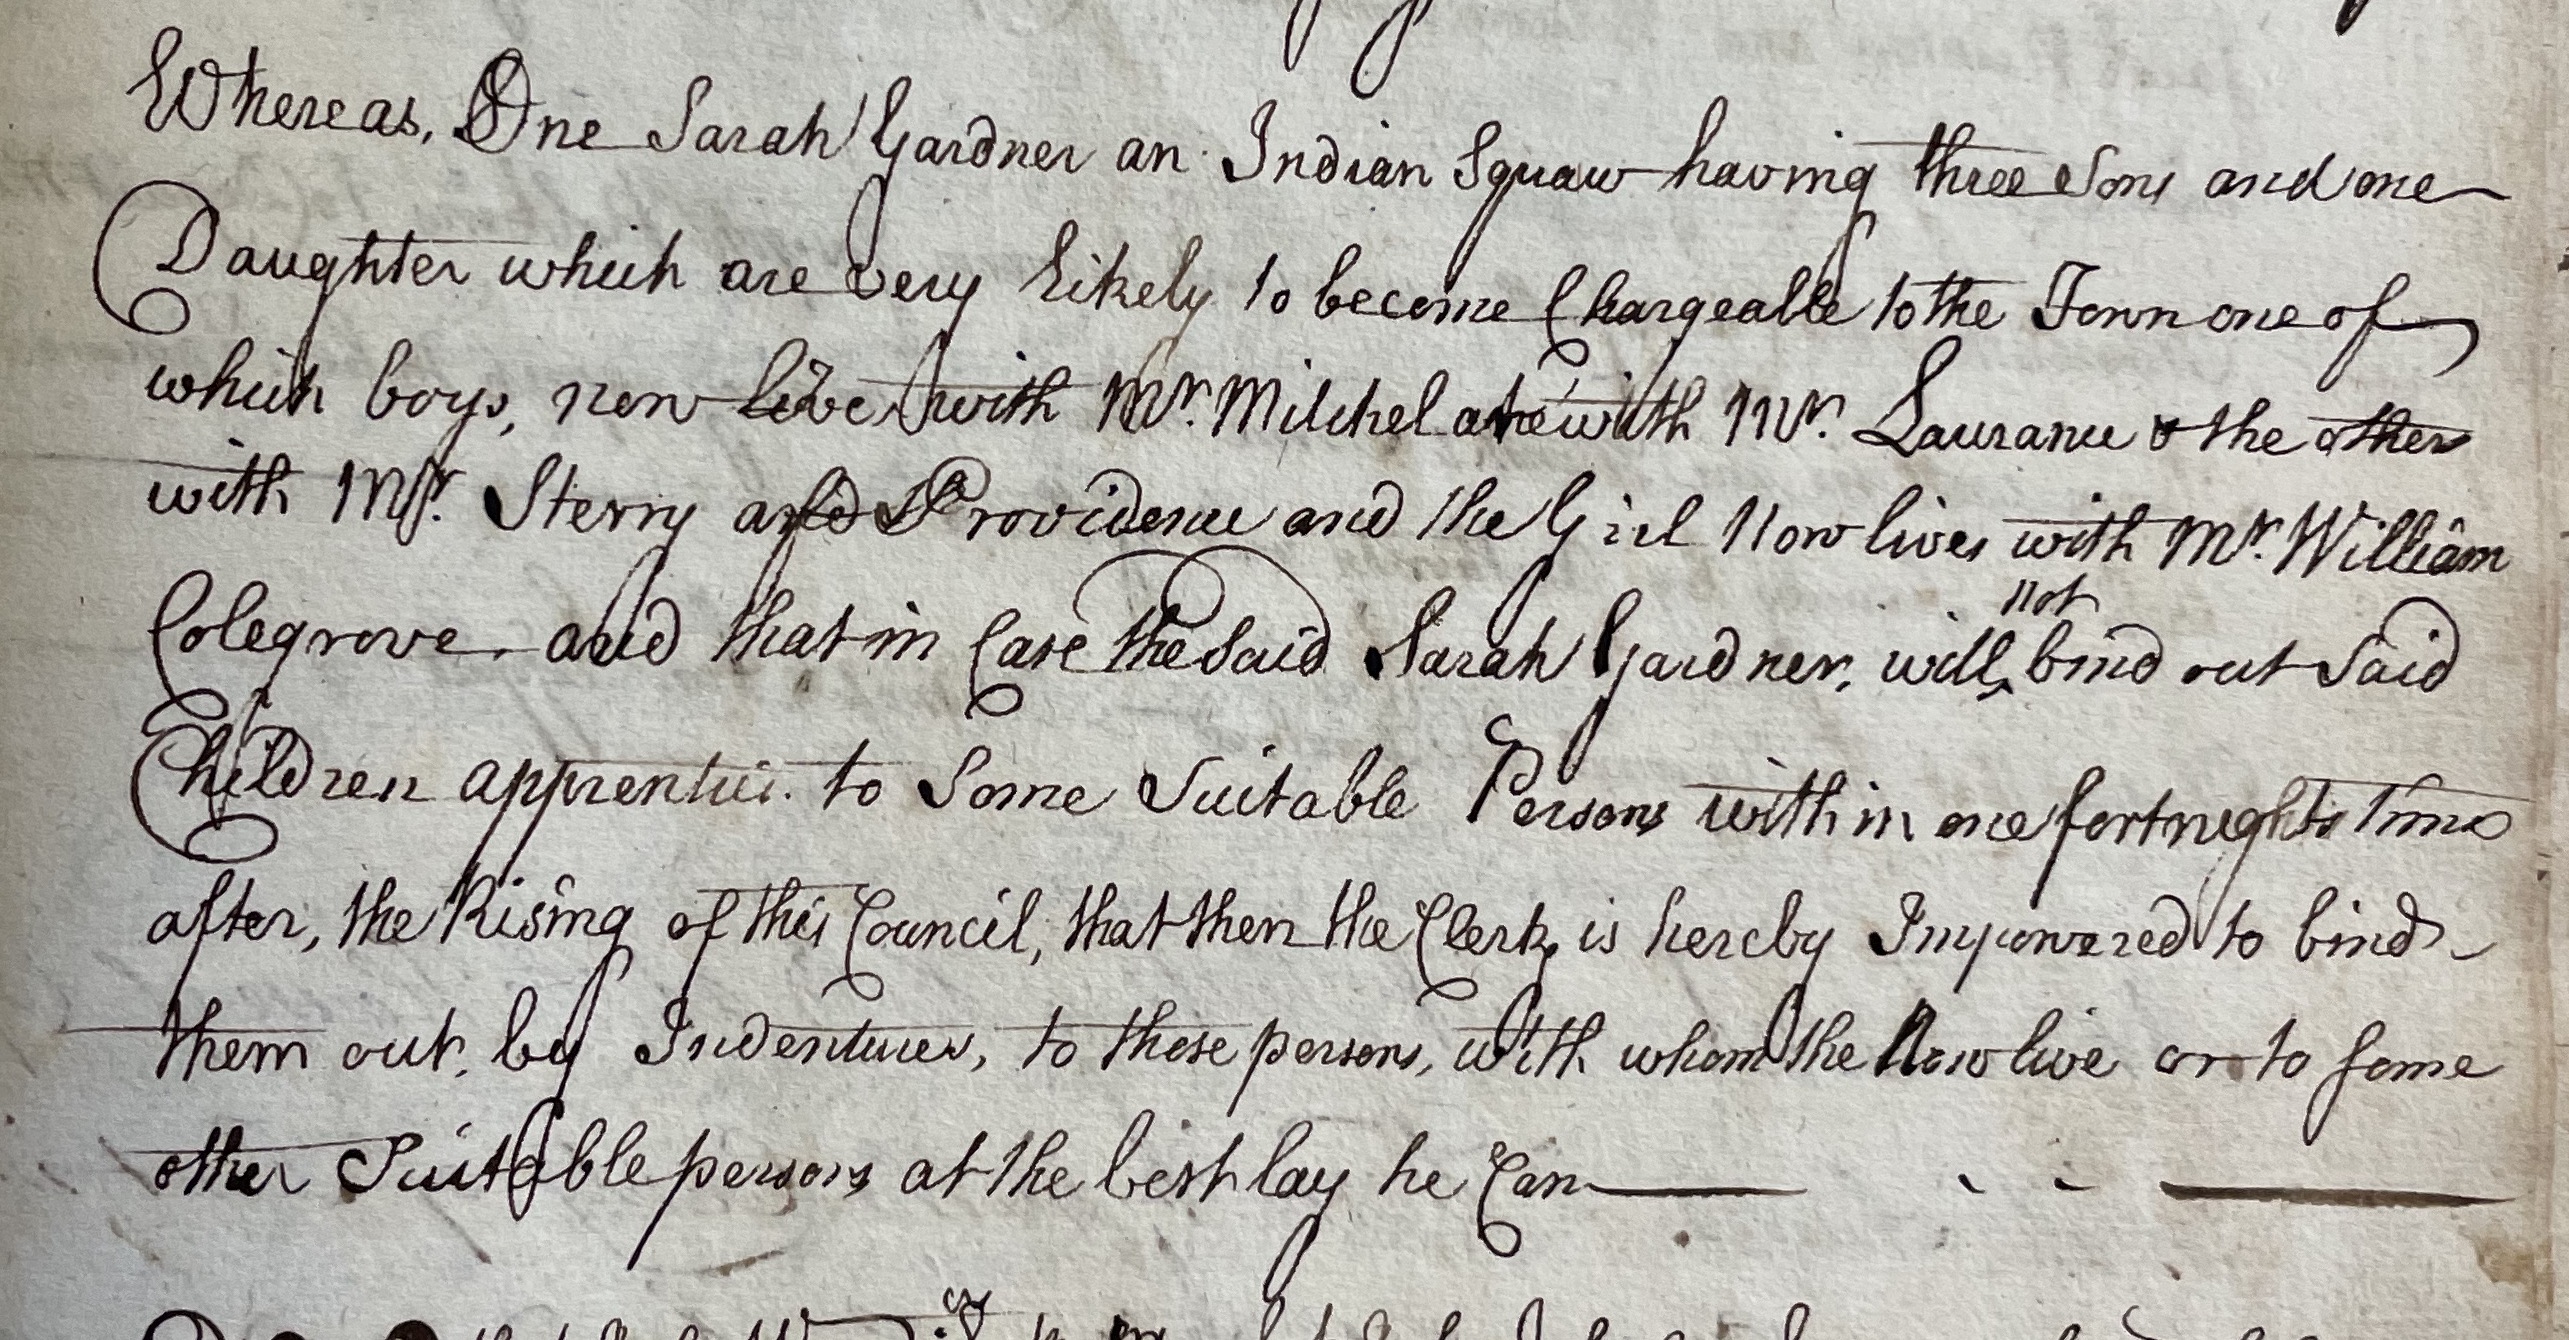 Whereas, One Sarah Gardner an Indian Squaw having three Sons and one
Daughter which are very likely to become Chargeable to the Town one of
which boys, now live with Mr. Mitchel one with Mr. Laurance & the other
with Mr. Sterry of Providence and the Girl Now lives with Mr. William
Colegrove. and that in Case the Said Sarah Gardner, will not bind out Said
Children apprentice. to Some Suitable Persons within one fortneghts time
after, the Rising of this Council, that then the Clerk, is hereby Impowered to bind
them out, by Indentures, to those persons, with whom the Now live or to some
other Suitable persons at the best lay he Can